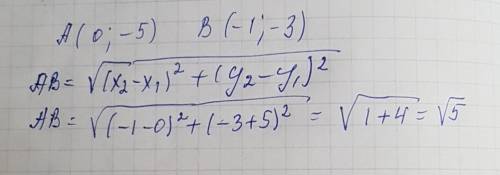 A(0;-5) B(-1;-3)
AB=√(x₂-x₁)²+(y₂-y₁)²
AB=√(-1-0)²+(-3+5)² = √1+4 = √5